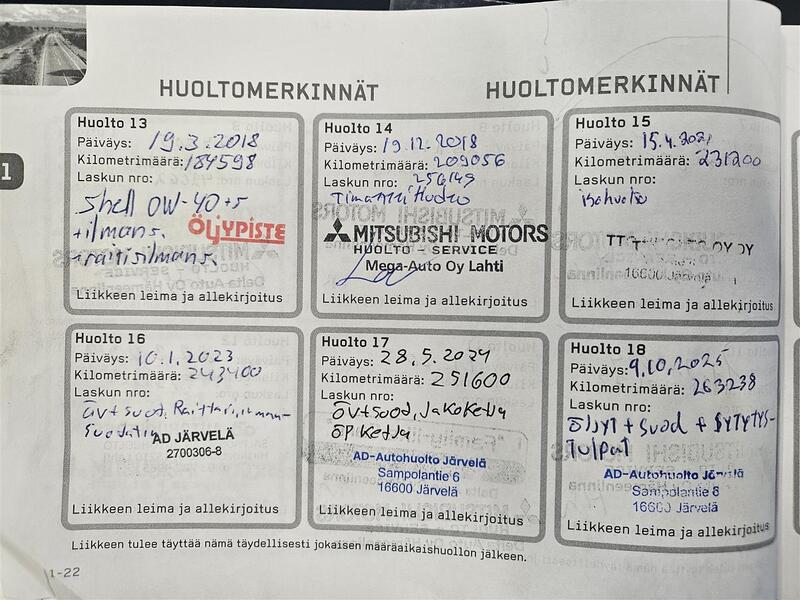 HUOLTOMERKINNÄT
HUOLTOMERKINNÄT
1
Huolto 13
Päiväys: 19.3.2018
Kilometrimäärä: 184598
Laskun nro:
Shell 0W-40+s
+ilmans.
+raitisilmans.
ÖLJYPISTE
Liikkeen leima ja allekirjoitus
Huolto 14
Päiväys: 19.12.2018
Kilometrimäärä: 209056
Laskun nro: 256149
Timantti Huolto
MITSUBISHI MOTORS
HUOLTO - SERVICE
Mega-Auto Oy Lahti
Liikkeen leima ja allekirjoitus
Huolto 15
Päiväys: 15.4.2021
Kilometrimäärä: 231200
Laskun nro:
isohuolto
OY
16600 Järvelä
Liikkeen leima ja allekirjoitus
Huolto 16
Päiväys: 10.1.2023
Kilometrimäärä: 243400
Laskun nro:
öv+suod, Raitis,
suodatin
AD JÄRVELÄ
2700306-8
Liikkeen leima ja allekirjoitus
Huolto 17
Päiväys: 28.5.2024
Kilometrimäärä: 251600
Laskun nro:
öv+suod, Jakoketju
öp ketju
AD-Autohuolto Järvelä
Sampolantie 6
16600 Järvelä
Liikkeen leima ja allekirjoitus
Huolto 18
Päiväys: 9.10.2025
Kilometrimäärä: 263238
Laskun nro:
öljyt + suod + SYTYTYS-
Tulpat
AD-Autohuolto Järvelä
Sampolantie 6
16600 Järvelä
Liikkeen leima ja allekirjoitus
Liikkeen tulee täyttää nämä täydellisesti jokaisen määräaikaishuollon jälkeen.
1-22